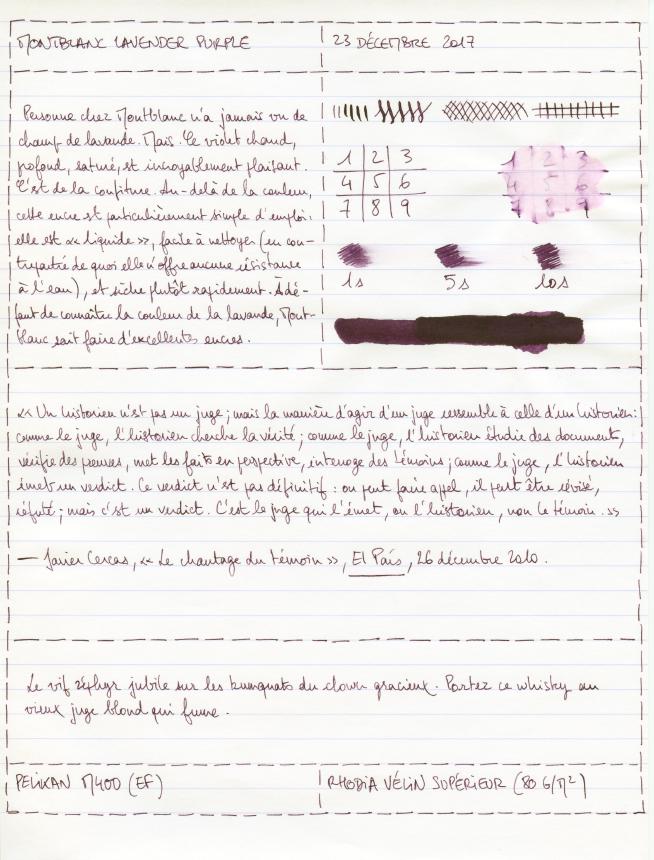 MONTBLANC LAVENDER PURPLE
23 DÉCEMBRE 2017
Personne chez Montblanc n'a jamais vu de
champ de lavande. Mais. Ce violet chaud,
profond, saturé, est incroyablement plaisant.
C'est de la confiture. Au-delà de la couleur,
cette encre est particulièrement simple d'emploi :
elle est « liquide », facile à nettoyer (en con-
trepartie de quoi elle n'offre aucune résistance
à l'eau), et sèche plutôt rapidement. À dé-
faut de connaître la couleur de la lavande, Mont-
blanc sait faire d'excellentes encres.
1 2 3
4 5 6
7 8 9
1 2 3
4 5 6
7 8 9
1s 5s 10s
« Un historien n'est pas un juge ; mais la manière d'agir d'un juge ressemble à celle d'un historien :
comme le juge, l'historien cherche la vérité ; comme le juge, l'historien étudie des documents,
vérifie des preuves, met les faits en perspective, interroge des témoins ; comme le juge, l'historien
émet un verdict. Ce verdict n'est pas définitif : on peut faire appel, il peut être révisé,
réfuté ; mais c'est un verdict. C'est le juge qui l'émet, ou l'historien, non le témoin. »
— Javier Cercas, « Le chantage du témoin », El País, 26 décembre 2010.
Le vif zéphyr jubile sur les kumquats du clown gracieux. Portez ce whisky au
vieux juge blond qui fume.
PELIKAN M400 (EF)
RHODIA VÉLIN SUPÉRIEUR (80 G/M²)